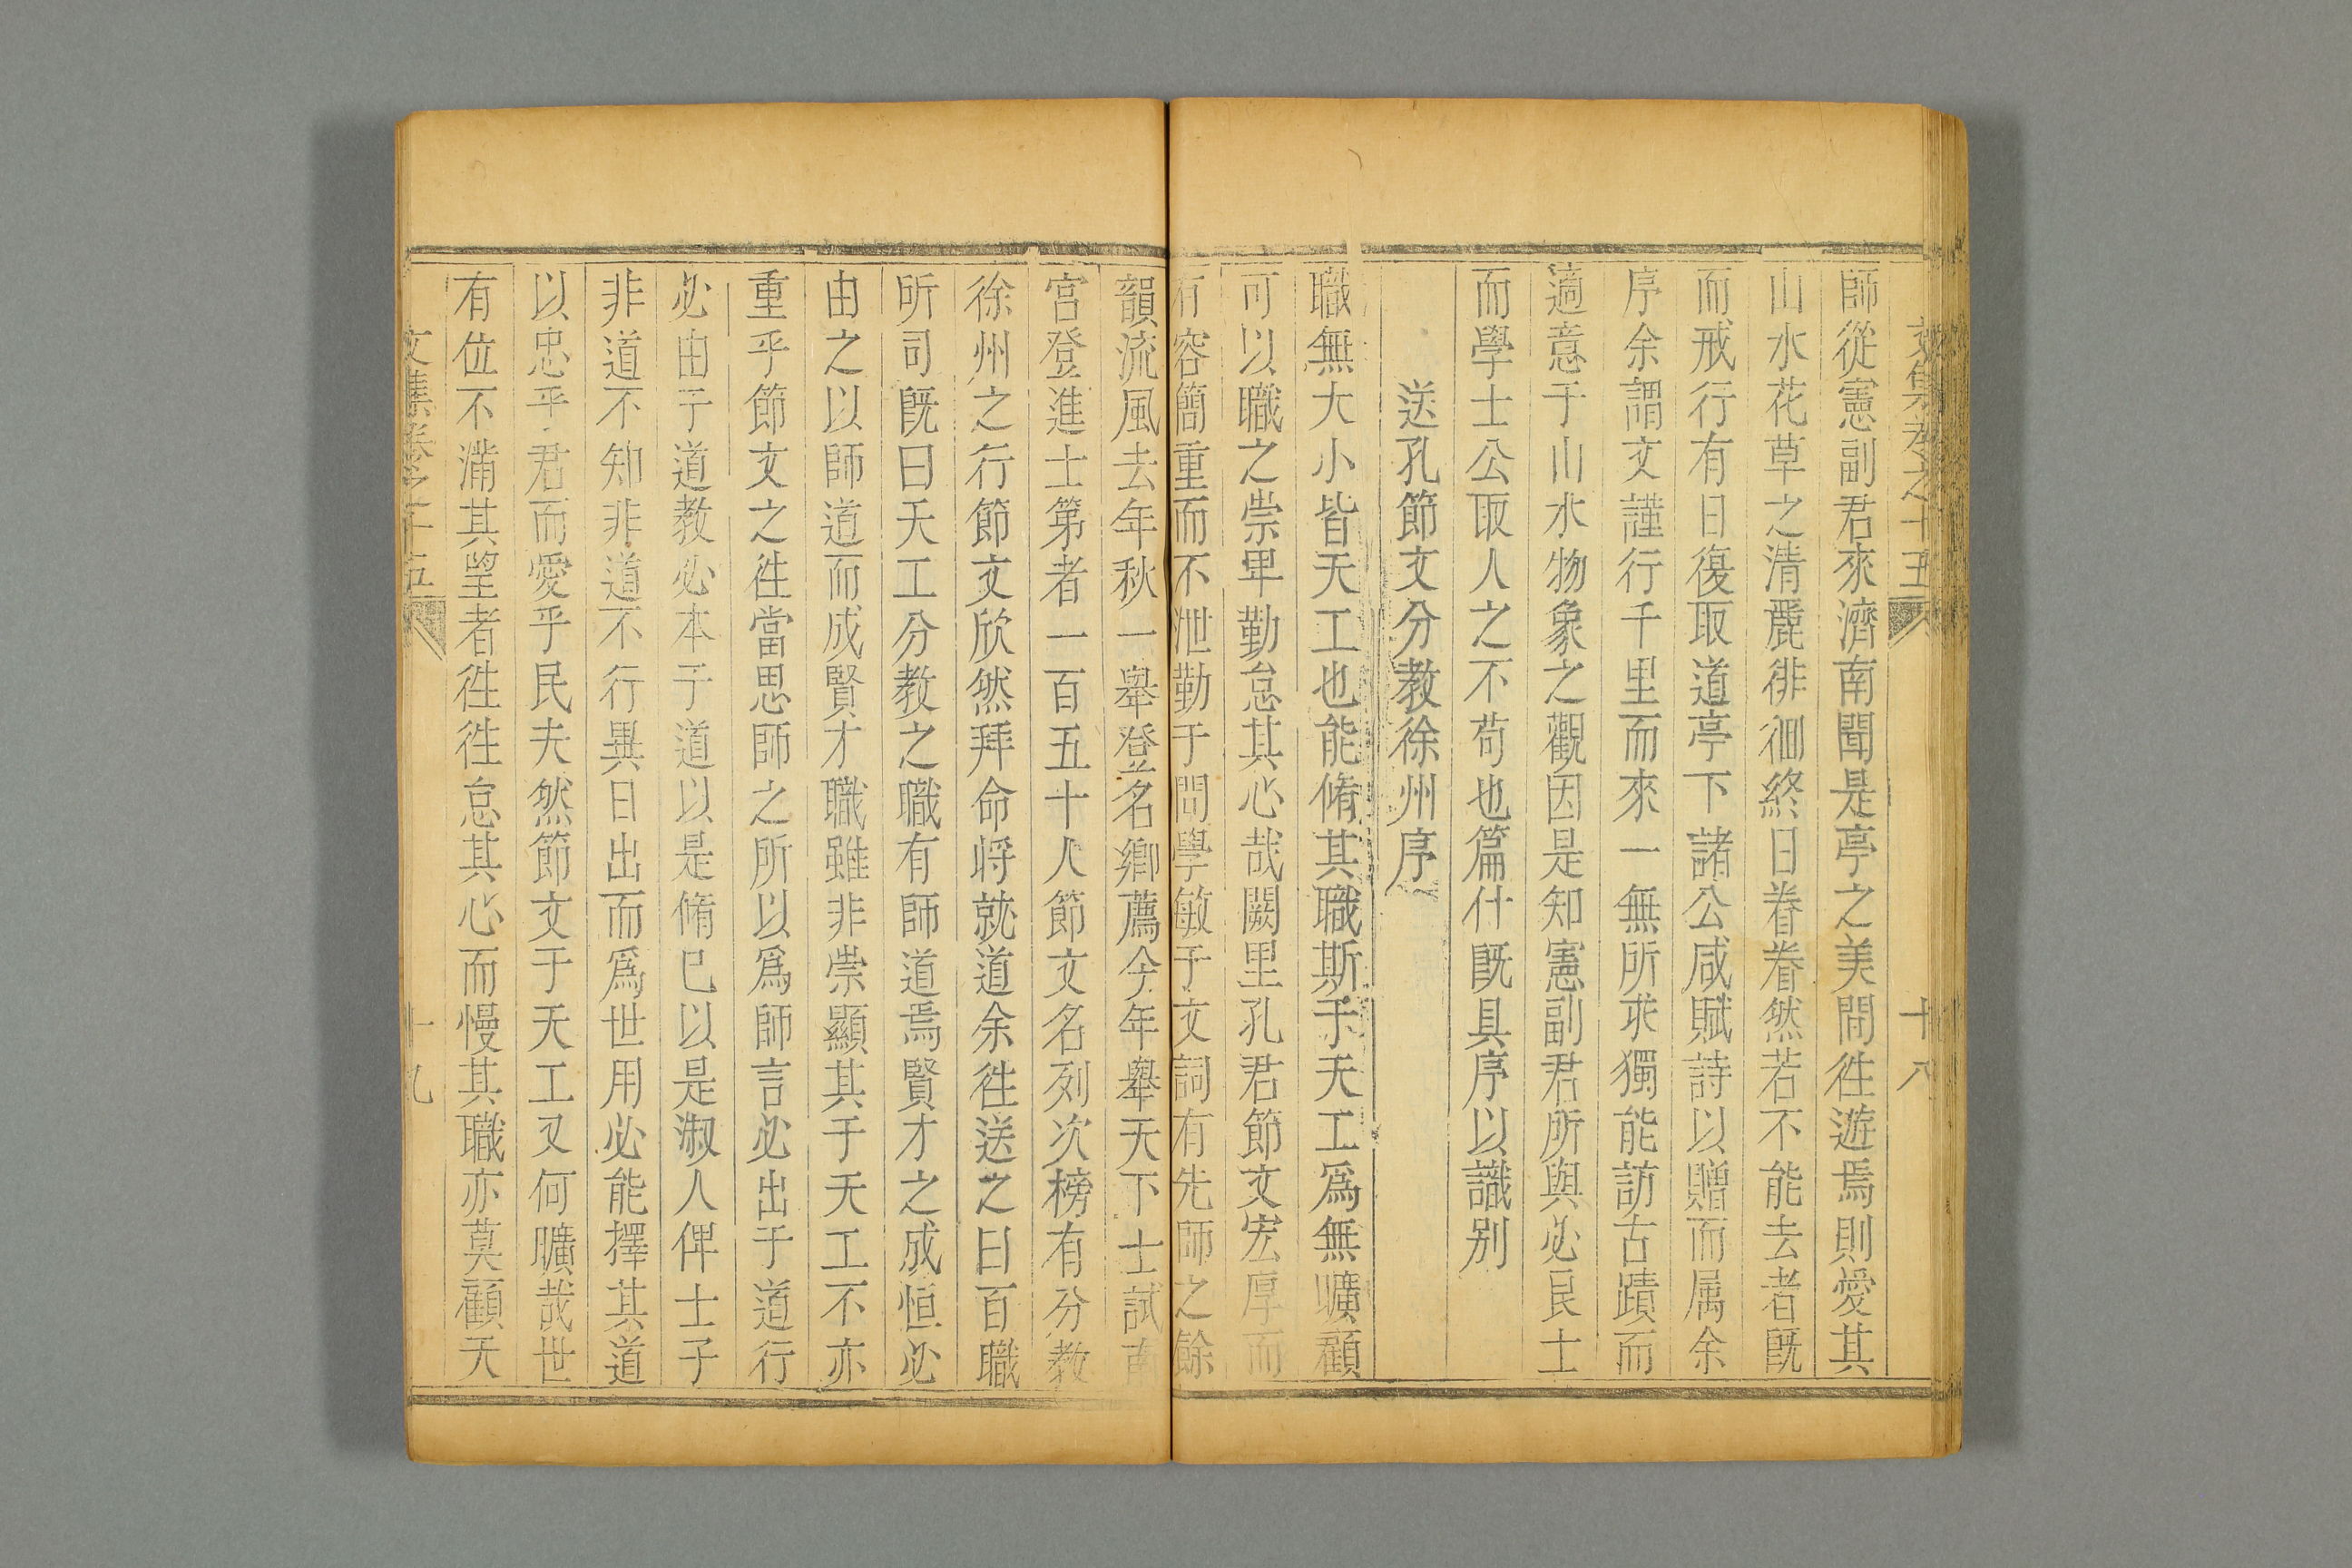 文集卷之十五
十八
師從憲副君來濟南聞是亭之美問徃遊焉則愛其
山水花草之清麗徘徊終日眷眷然若不能去者既
而戒行有日復取道亭下諸公咸賦詩以贈而属余
序余謂文謹行千里而來一無所求獨能訪古蹟而
適意于山水物象之觀因是知憲副君所與必良士
而學士公取人之不苟也篇什既具序以識别
送孔節文分教徐州序
職無大小皆天工也能脩其職斯于天工爲無曠顧
可以職之崇卑勤怠其心哉闕里孔君節文宏厚而
有容簡重而不泄勤于問學敏于文詞有先師之餘
韻流風去年秋一舉登名鄉薦今年舉天下士試南
宮登進士第者一百五十人節文名列次榜有分教
徐州之行節文欣然拜命将就道余徃送之曰百職
所司既曰天工分教之職有師道焉賢才之成恒必
由之以師道而成賢才職雖非崇顯其于天工不亦
重乎節文之徃當思師之所以爲師言必出于道行
必由于道教必本于道以是脩已以是淑人俾士子
非道不知非道不行異日出而爲世用必能擇其道
以忠乎君而愛乎民夫然節文于天工又何曠哉世
有位不滿其望者徃徃怠其心而慢其職亦莫顧天
文集卷之十五
十九